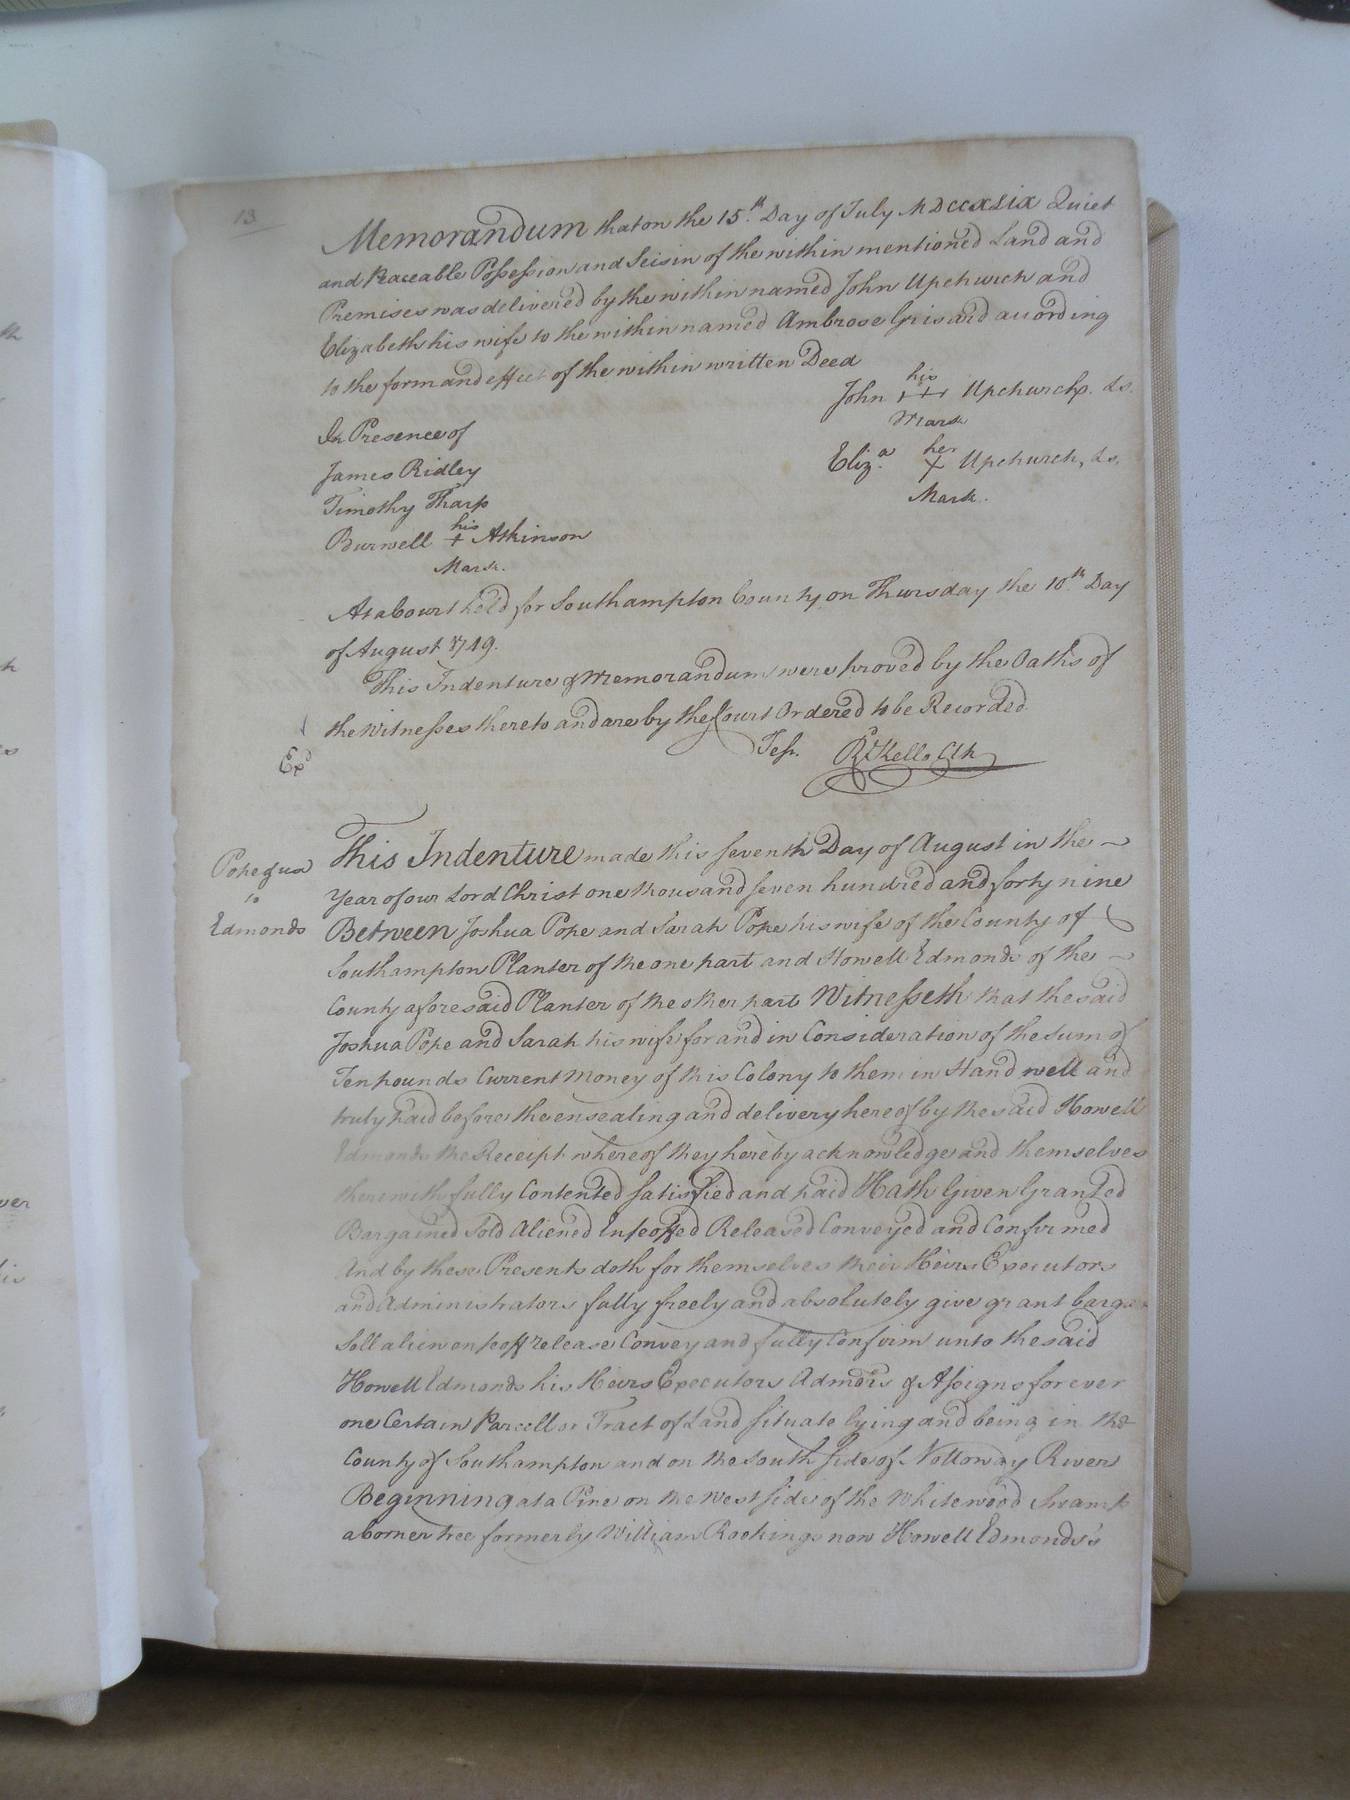 13
Memorandum that on the 15th Day of July MDCCXLIX Quiet
and Peaceable Possession and Seisin of the within mentioned Land and
Premises was delivered by the within named John Upchurch and
Elizabeth his wife to the within named Ambrose Grisard according
to the form and effect of the within written Deed
his
John +++ Upchurch. Ls.
Mark
her
Eliz.a X Upchurch, Ls.
Mark.
In Presence of
James Ridley
Timothy Tharp
his
Burwell + Atkinson
Mark.
At a Court held for Southampton County on Thursday the 10th Day
of August 1749.
This Indenture & Memorandum were proved by the Oaths of
the Witnesses thereto and are by the Court Ordered to be Recorded
Test. Rd Kello Clk
Exd
Pope & ux
to
Edmonds
This Indenture made this seventh Day of August in the
Year of our Lord Christ one thousand seven hundred and forty nine
Between Joshua Pope and Sarah Pope his wife of the County of
Southampton Planter of the one part and Howell Edmonds of the
County aforesaid Planter of the other part Witnesseth that the said
Joshua Pope and Sarah his wife for and in Consideration of the sum of
Ten pounds Current Money of this Colony to them in Hand well and
truly paid before the ensealing and delivery hereof by the said Howell
Edmonds the Receipt whereof they hereby acknowledge and themselves
therewith fully Contented satisfied and paid Hath Given Granted
Bargained Sold Aliened Enfeoffed Released Conveyed and Confirmed
And by these Presents doth for themselves their Heirs Executors
and Administrators fully freely and absolutely give grant barga
Sell alien enfeoff release Convey and fully Confirm unto the said
Howell Edmonds his Heirs Executors Admors & Assigns forever
one Certain Parcell or Tract of Land situate lying and being in the
County of Southampton and on the South side of Nottoway River
Beginning at a Pine on the West side of the Whitewood Swamp
a Corner tree formerly William Rockings now Howell Edmonds's